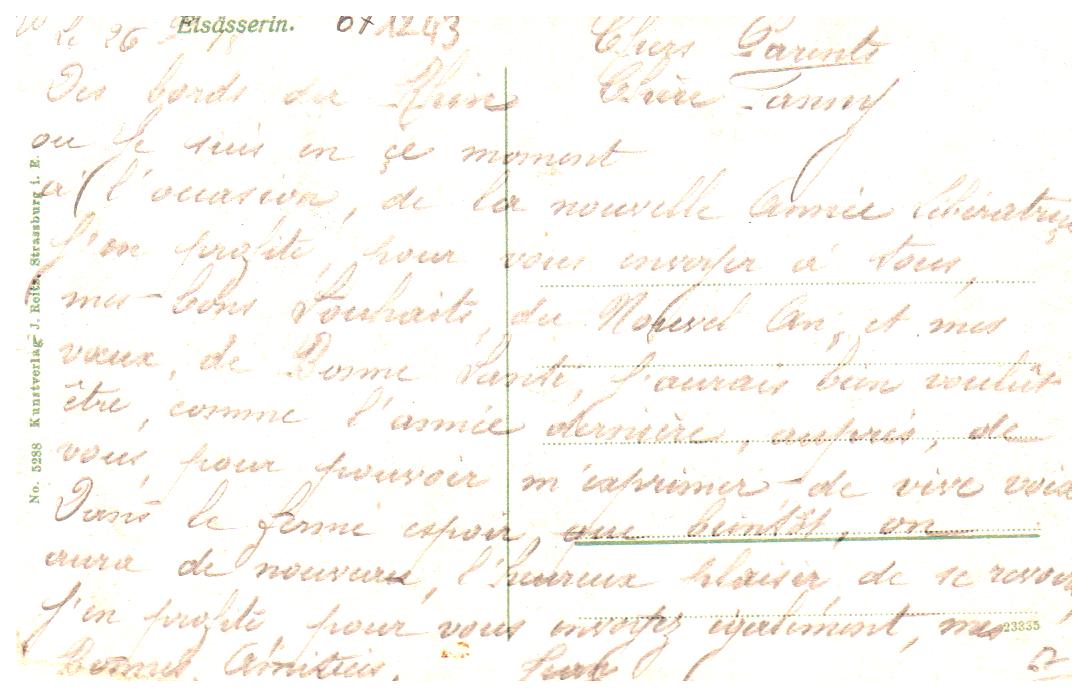 Elsässerin.
671243
Le 26
Chers Parents
Chère Fanny
Des bords du Rhin
ou je suis en ce moment
à l'occasion, de la nouvelle Année libératrice
j'en profite, pour vous envoyer à tous,
mes bons Souhaits, du Nouvel An, et mes
vœux, de Bonne Santé, j'aurais bien voulut
être, comme l'année dernière, auprès, de
vous, pour pouvoir m'exprimer de vive voix
Dans le ferme espoir que bientôt, on
aura de nouveau, l'heureux plaisir, de se revoir
J'en profite, pour vous envoyez également, mes
Bonnes, Amitiés,
No. 5288 Kunstverlag J. Reitz. Strassburg i. E.
23335